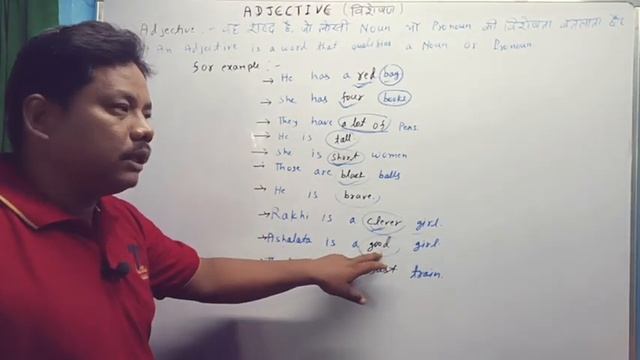 ADJECTIVE (विशेषण)
Adjective :- वह शब्द है, जो किसी Noun और Pronoun की विशेषता बतलाता है।
An Adjective is a word that qualifies a Noun or Pronoun
for example :-
→ He has a red bag
→ She has four books
→ They have a lot of Pens.
→ He is tall
→ She is short women
→ Those are black balls
→ He is brave.
→ Rakhi is a clever girl.
→ Ashalata is a good girl.
train.